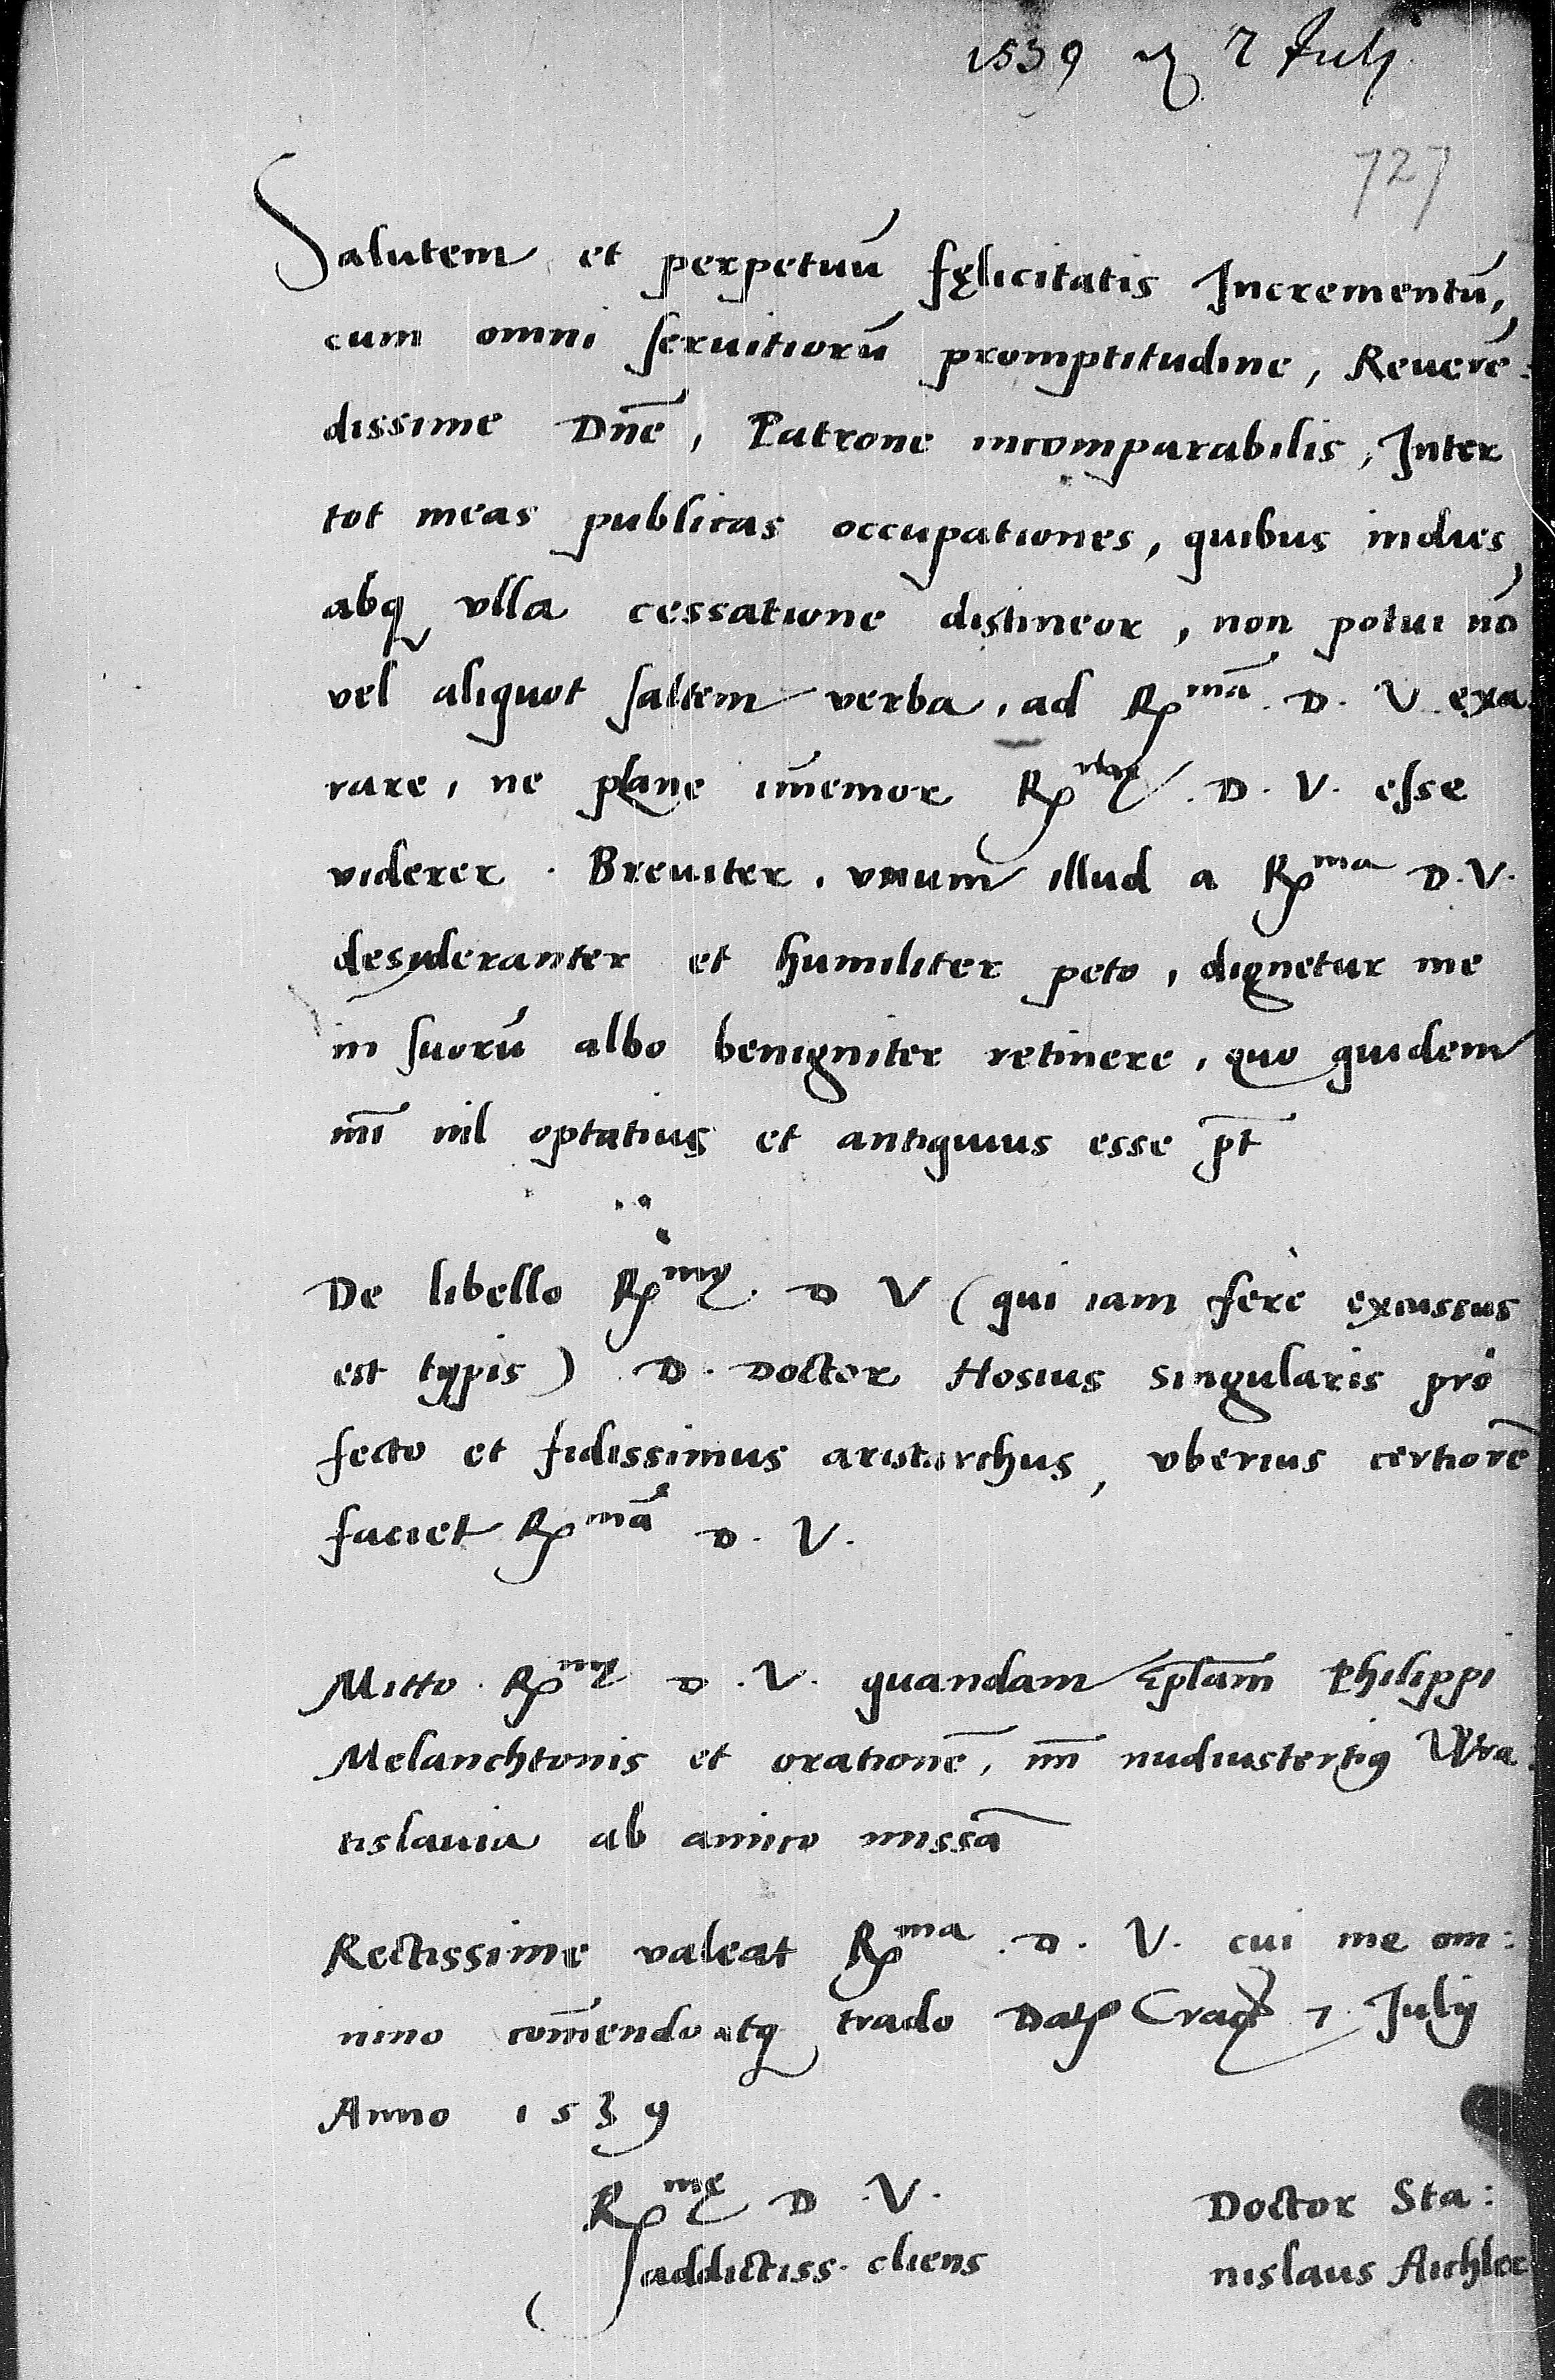 1539 7 Julj
727
Salutem et perpetuū fęlicitatis Incrementū,
cum omni seruitiorū promptitudine, Reuerē:
dissime Dn̄e, Patrone incomparabilis, Inter
tot meas publicas occupationes, quibus indies,
absq vlla cessatione distineor, non potui nō
vel aliquot saltem verba, ad Rmā. D. V. exa
rare, ne plane im̄emor Rmę D. V. esse
viderer. Breuiter, vnum illud a Rma D. V.
desyderanter et humiliter peto, dignetur me
in suorū albo benigniter retinere, quo quidem
mī nil optatius et antiquius esse pt̄
De libello Rmę D V (qui iam ferè excussus
est typis) D. Doctor Hosius singularis pro
fecto et fidissimus aristarchus, vberius certiorē
faciet Rmā D. V.
Mitto Rmę D. V. quandam Ep̄lam Philippi
Melanchtonis et orationē, mī nudiustertius Wra:
tislauia ab amico missā
Rectissime valeat Rma. D. V. cui me om:
nino com̄endo atq trado Dat Crac 7 Julij
Anno 1539
Rmę D. V.
addictiss. cliens
Doctor Sta:
nislaus Aichler